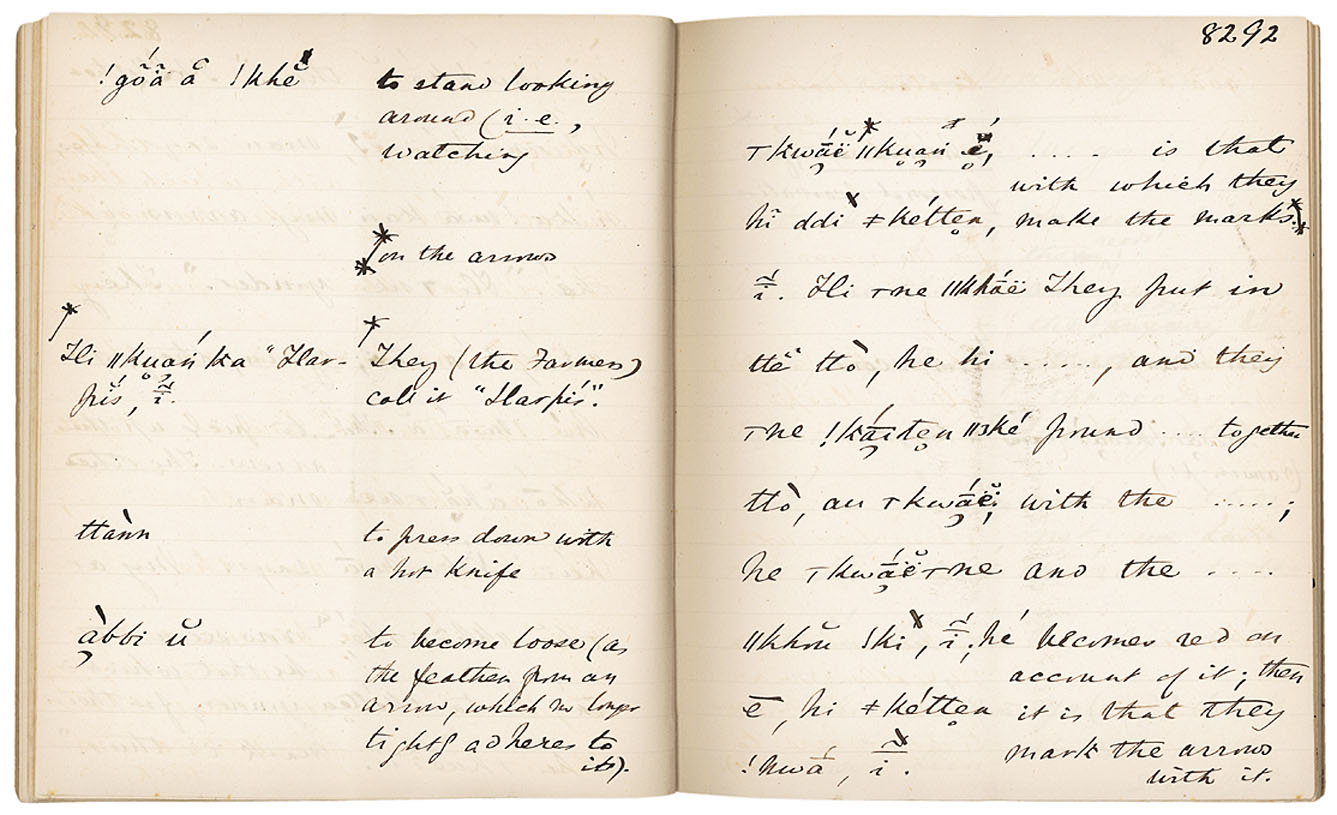 !gṍã å !khĕ to stand looking
around (i.e.,
watching
on the arrows
Hi ǁkuań ka "Har- They (the Farmers)
pĭś, ĩ. call it "Harpís".
ttànn to press down with
a hot knife
àbbi ŭ to become loose (as
the feather from an
arrow, which no longer
tightly adheres to
it).
8292
..... is that
with which they
hĭ ddi ǂkétten, make the marks.
ĩ. Hi ┬ne ǁkháë They put in
ttĕ ttò, he hi ....., and they
┬ne !káïten pound .... together
ttò, au ┬kwáë; with the .....;
he ┬kwáë ┬ne and the ....
ǁkhŏu !ki, ĩ; hé becomes red on
account of it; then
ē, hi ǂkétten it is that they
!nwá, ĩ. mark the arrows
with it.